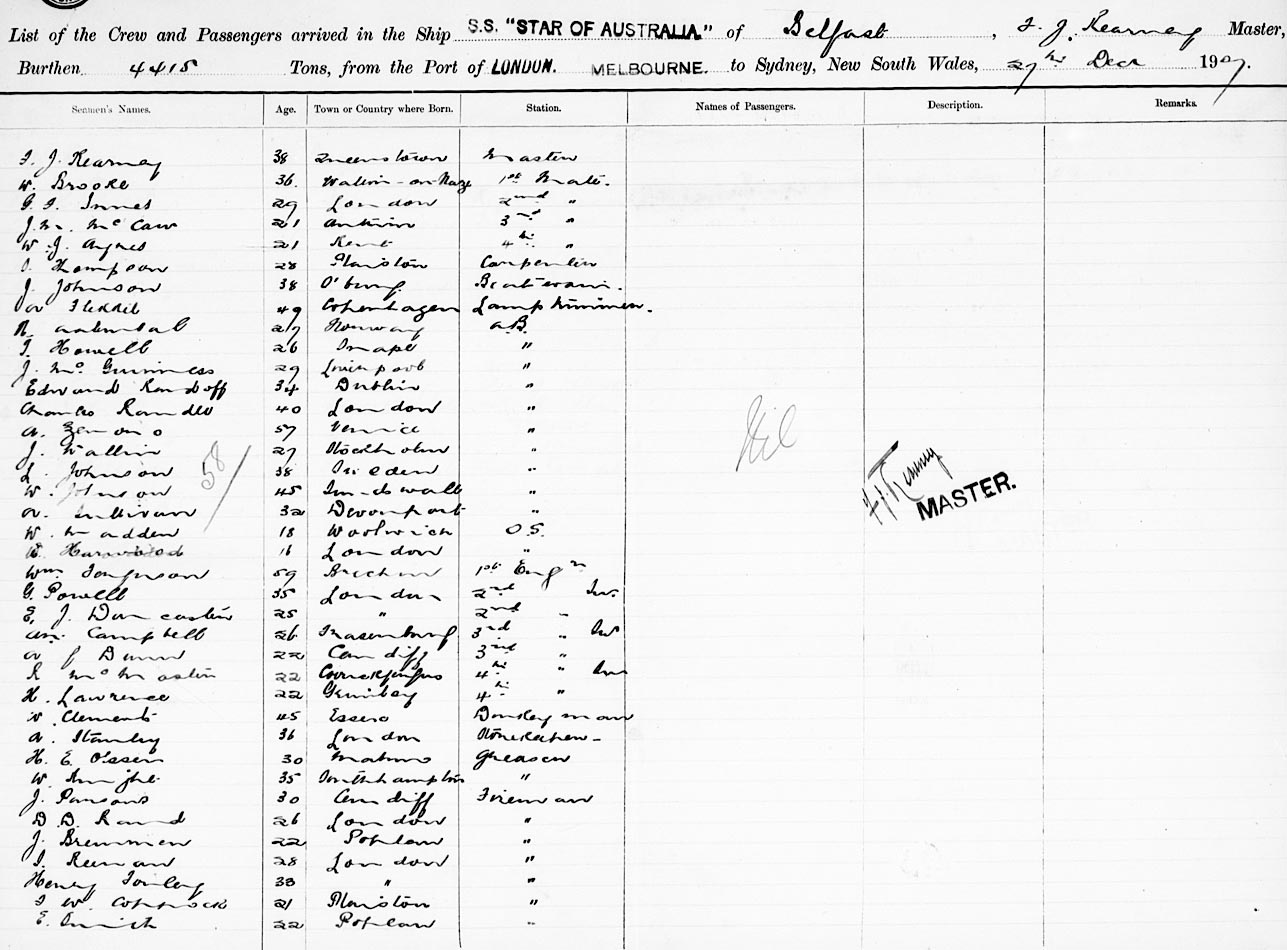 List of the Crew and Passengers arrived in the Ship S.S. "STAR OF AUSTRALIA." of Belfast, F. J. Kearney Master,
Burthen 4415 Tons, from the Port of LONDON. MELBOURNE. to Sydney, New South Wales, 27th Decr 1907.
Seamen's Names. Age. Town or Country where Born. Station. Names of Passengers. Description. Remarks.
F. J. Kearney 38 Queenstown Master
W. Brooke 36. Walton-on-Naze 1st Mate.
G. F. Innes 29 London 2nd "
J. M. McCaw 21 Antrim 3rd "
W. J. 21 Kent 4th "
Thompson 28 Plaistow Carpenter
J. Johnson 38 Boatswain.
49 Copenhagen Lamptrimmer.
27 Norway A.B.
T. Howell 26 "
J. McGuinness 29 Liverpool "
Edward 34 Dublin "
Charles 40 London "
A. 57 Venice "
J. Wallin 27 Stockholm "
L. Johnson 38 Sweden "
W. Johnson 45 "
Sullivan 32 Devonport "
W. Madden 18 Woolwich O.S.
Harwood 16 London "
Wm Ferguson 59 Brechin 1st Engr
G. Powell 35 London 2nd
E. J. Doncaster 25 " 2nd "
Campbell 26 3rd "
Dunn 22 Cardiff 3rd "
McMaster 22 4th "
H. Lawrence 22 Grimsby 4th "
W. Clements 45 Essex Donkeyman
A. Stanley 36 London Storekeeper
H. E. Olssen 30 Malmo Greaser
W. 35 Southampton "
J. Parsons 30 Cardiff Fireman
D. D. Rand 26 London "
J. Bremmen 22 Poplar "
28 London "
Henry 33 " "
21 Plaistow "
E. Smith 22 Poplar "
58/
Nil
F. J. Kearney
MASTER.